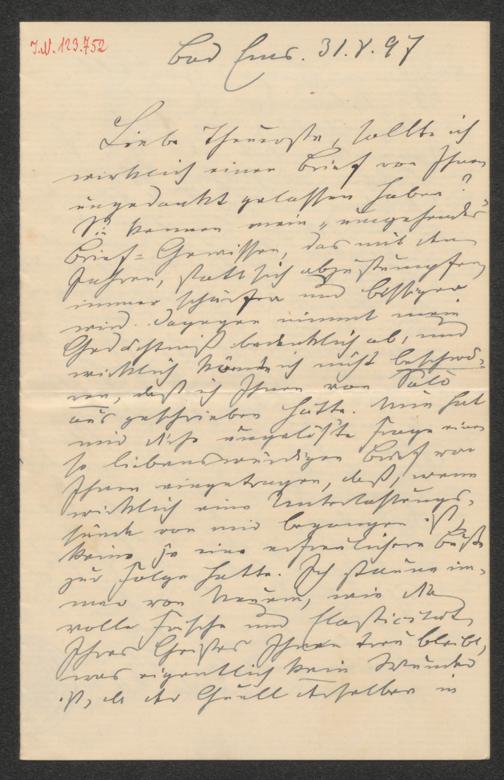 I.N. 123.752
Bad Ems. 31.V.97
Liebe Theuerste, sollte ich
wirklich einen Brief von Ihnen
ungedankt gelassen haben?
Sie kennen mein „umgehendes"
Brief-Gewissen, das mit den
Jahren, statt sich abzustumpfen
immer schärfer und bissiger
wird. Dagegen nimmt mein
Gedächtniß bedenklich ab, und
wirklich könnte ich nicht beschwö-
ren, daß ich Ihnen von Salò
aus geschrieben hatte. Nun hat
mir diese ungelöste Frage einen
so liebenswürdigen Brief von
Ihnen eingetragen, daß, wenn
wirklich eine Unterlassungs-
sünde von mir begangen ist,
keine je eine erfreulichere Buße
zur Folge hatte. Ich staune im-
mer von Neuem, wie die
volle Frische und Elasticität
Ihres Geistes Ihnen treu bleibt,
was eigentlich kein Wunder
ist, da der Quell derselben in